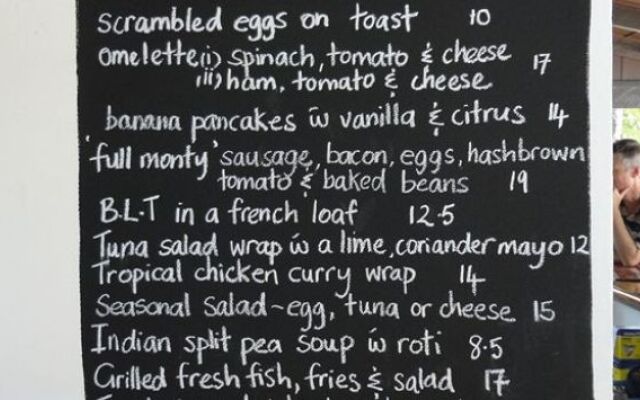 scrambled eggs on toast 10
omelette (i) spinach, tomato & cheese 17
(ii) ham, tomato & cheese
banana pancakes w vanilla & citrus 14
'full monty' sausage, bacon, eggs, hashbrown
tomato & baked beans 19
B.L.T in a french loaf 12.5
Tuna salad wrap w a lime, coriander mayo 12
Tropical chicken curry wrap 14
Seasonal Salad - egg, tuna or cheese 15
Indian split pea soup w roti 8.5
Grilled fresh fish, fries & salad 17